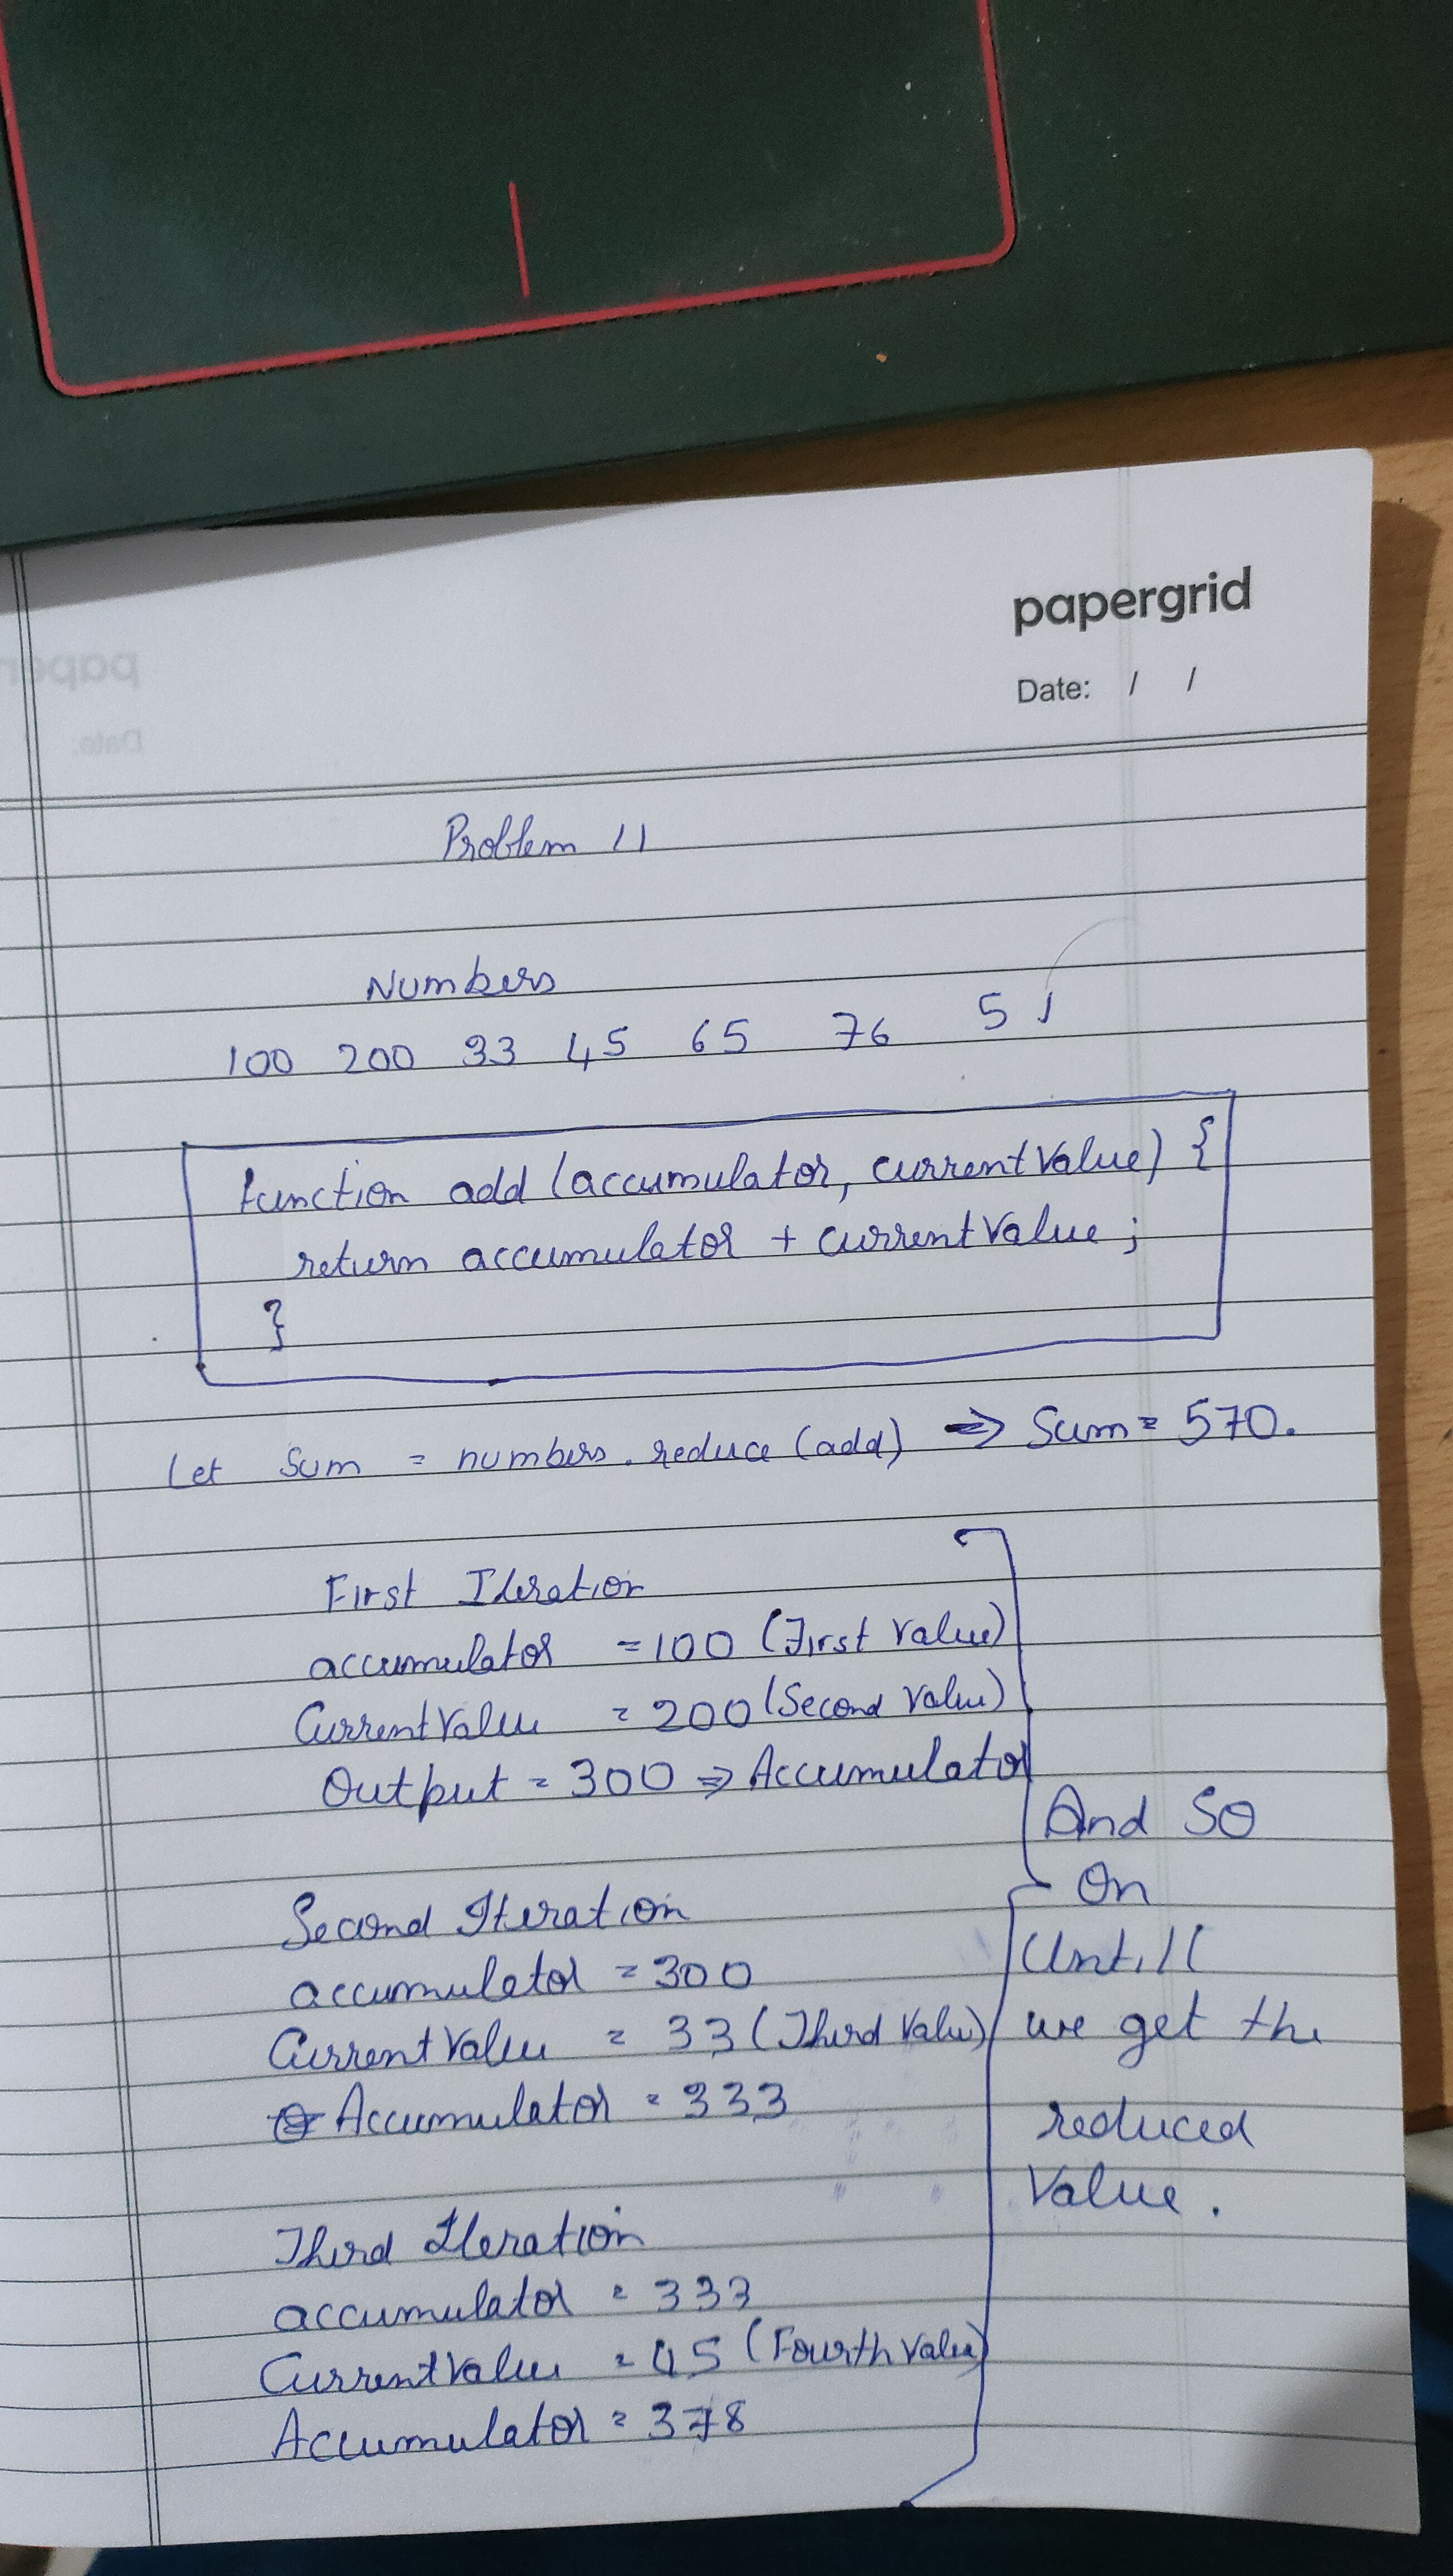 papergrid
Date: / /
Problem 11
Numbers
100 200 33 45 65 76 51
function add (accumulator, currentValue) {
return accumulator + currentValue ;
}
Let Sum = numbers.reduce (add) => Sum = 570.
First Iteration
accumulator = 100 (First Value)
CurrentValue = 200 (Second Value)
Output = 300 => Accumulator
Second Iteration
accumulator = 300
CurrentValue = 33 (Third Value)
Accumulator = 333
Third Iteration
accumulator = 333
CurrentValue = 45 (Fourth Value)
Accumulator = 378
And So
On
Untill
we get the
reduced
Value.